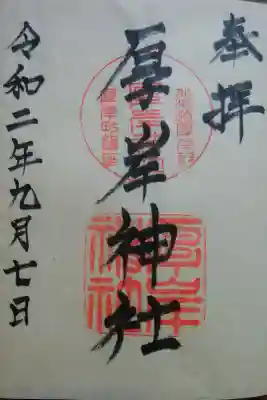 奉拝
厚岸神社
令和二年九月七日
厚岸神社